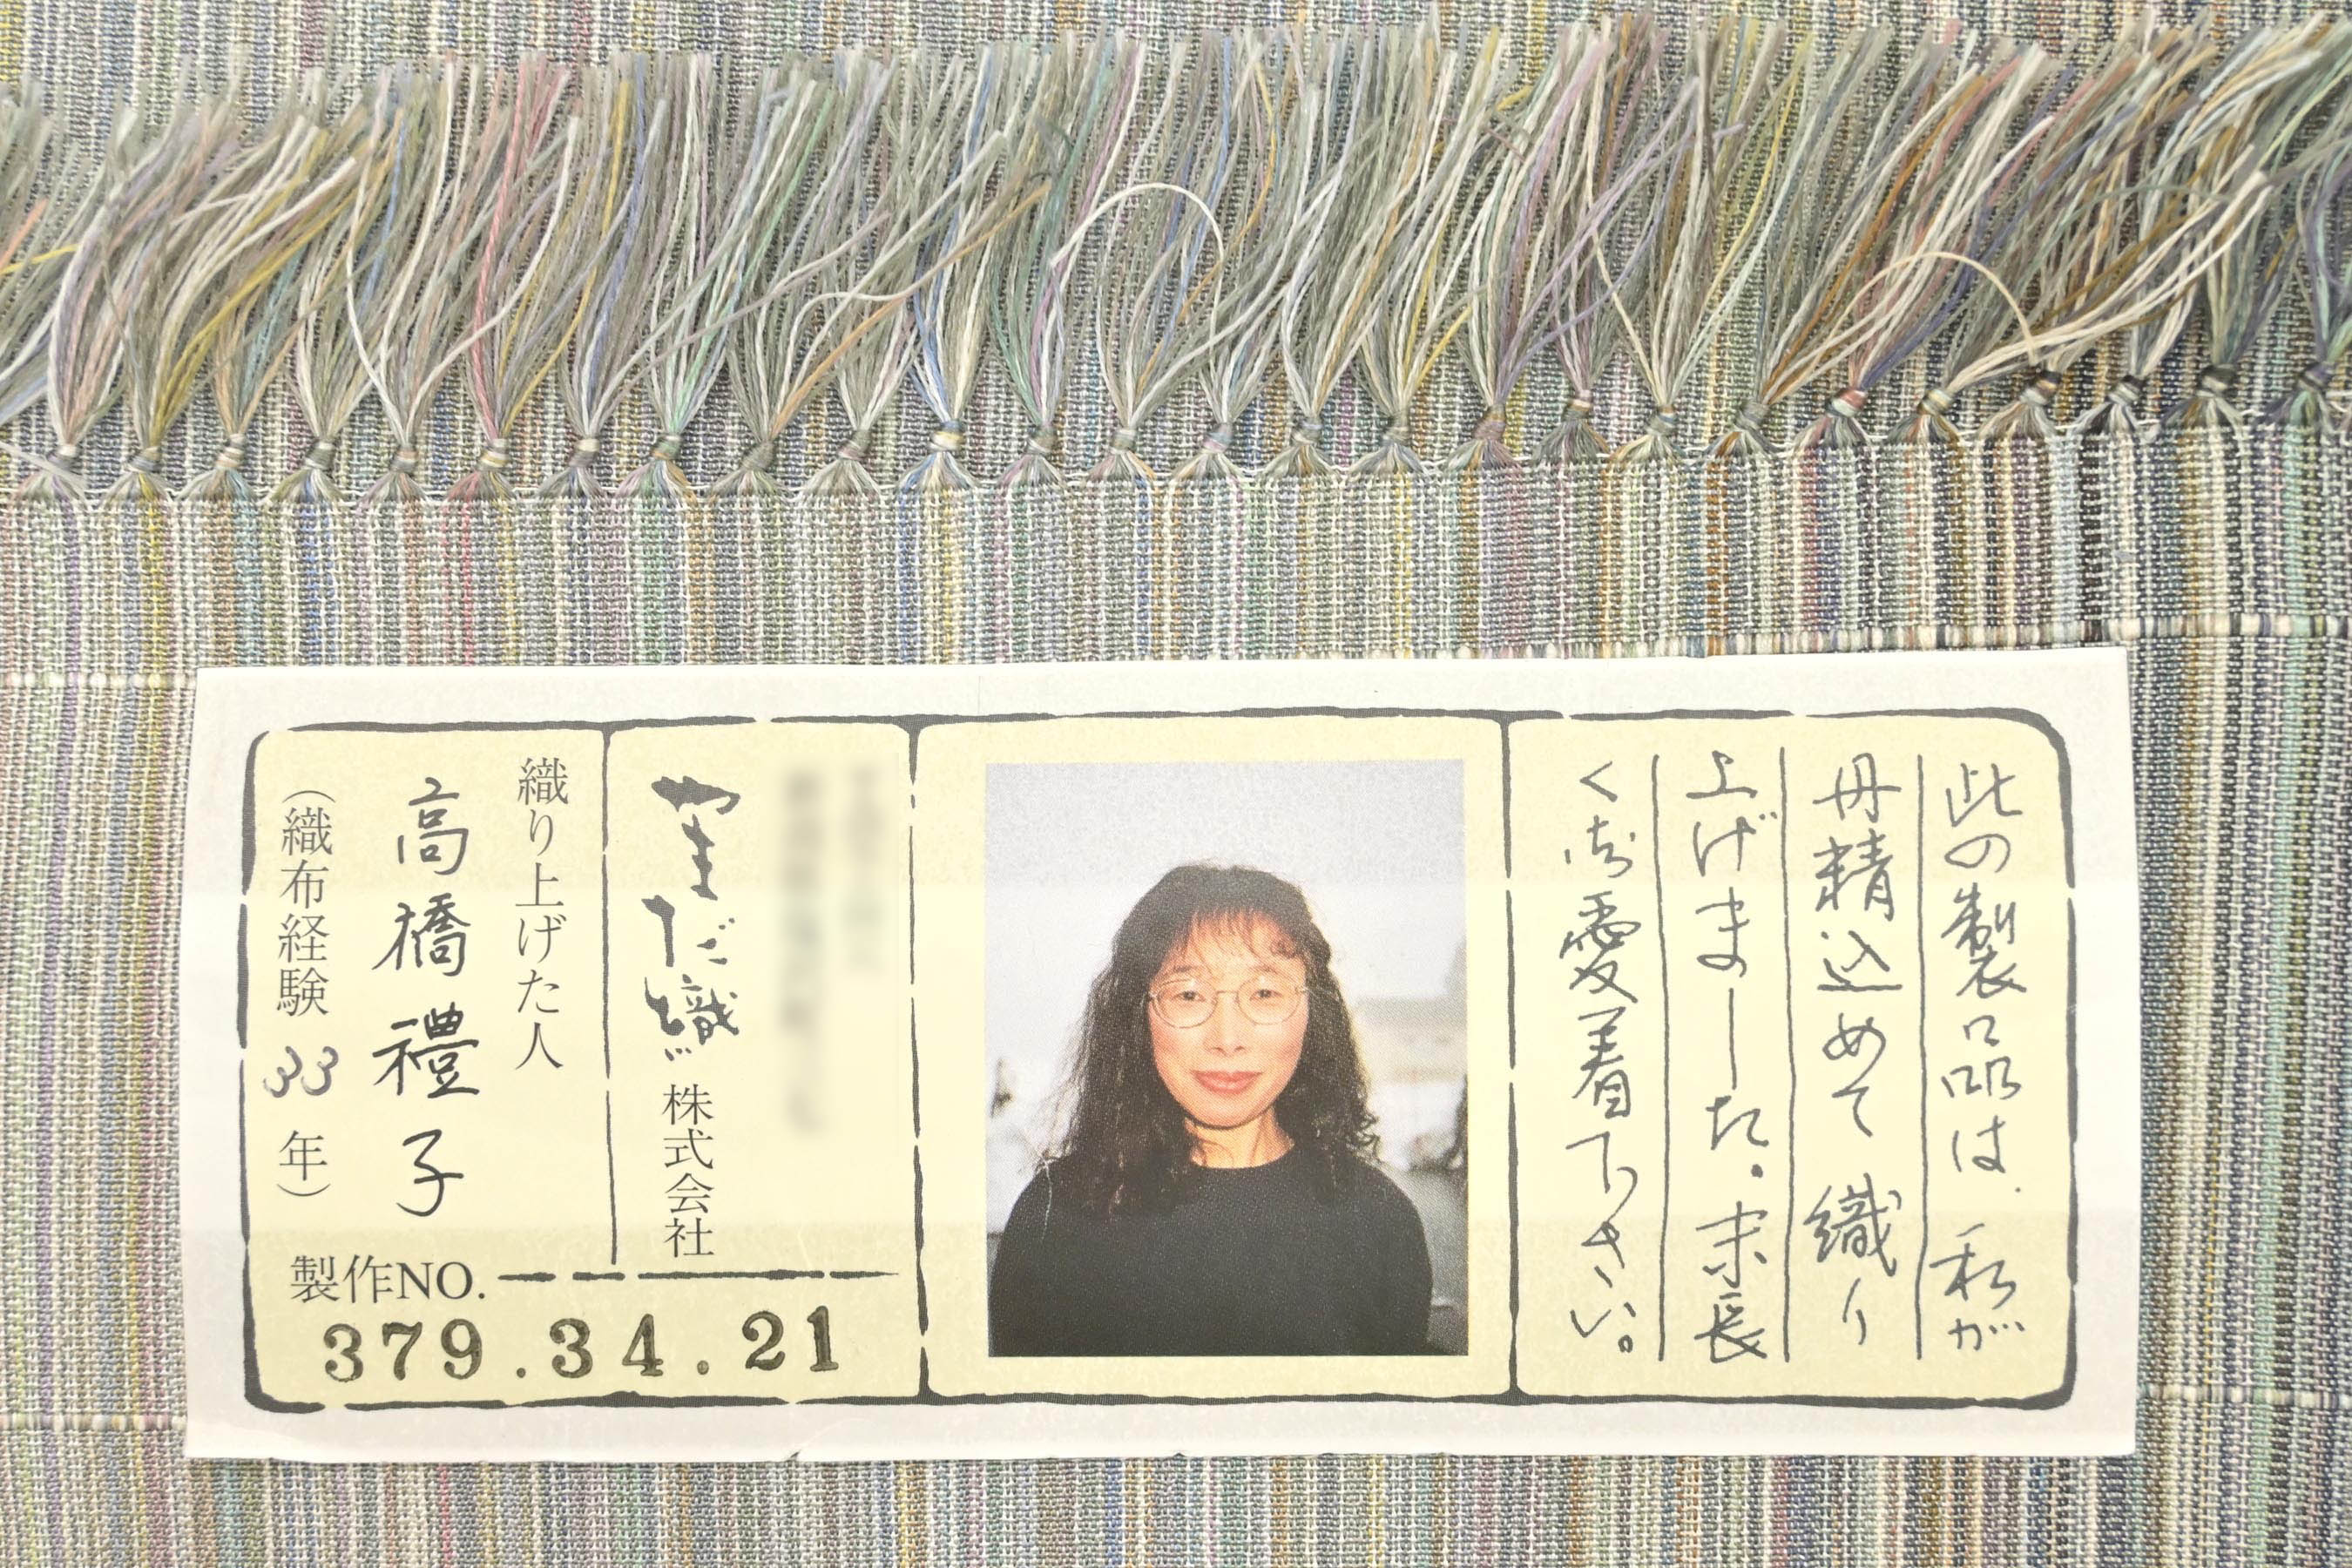 此の製品は、私が
丹精込めて織り
上げました。末長
く御愛着下さい。
やまだ織
株式会社
織り上げた人
高橋禮子
（織布経験 33 年）
製作NO.
379.34.21